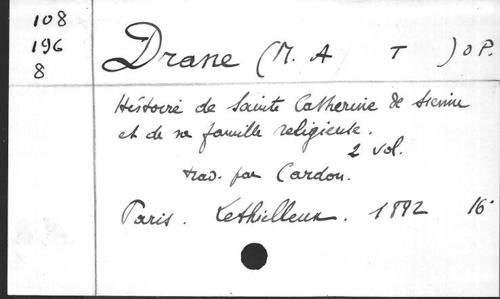 108
196
8
Drane (M. A T ) O P.
Histoire de Sainte Catherine de Sienne
et de sa famille religieuse.
2 vol.
trad. par Cardon.
Paris. Lethielleux. 1892 16°